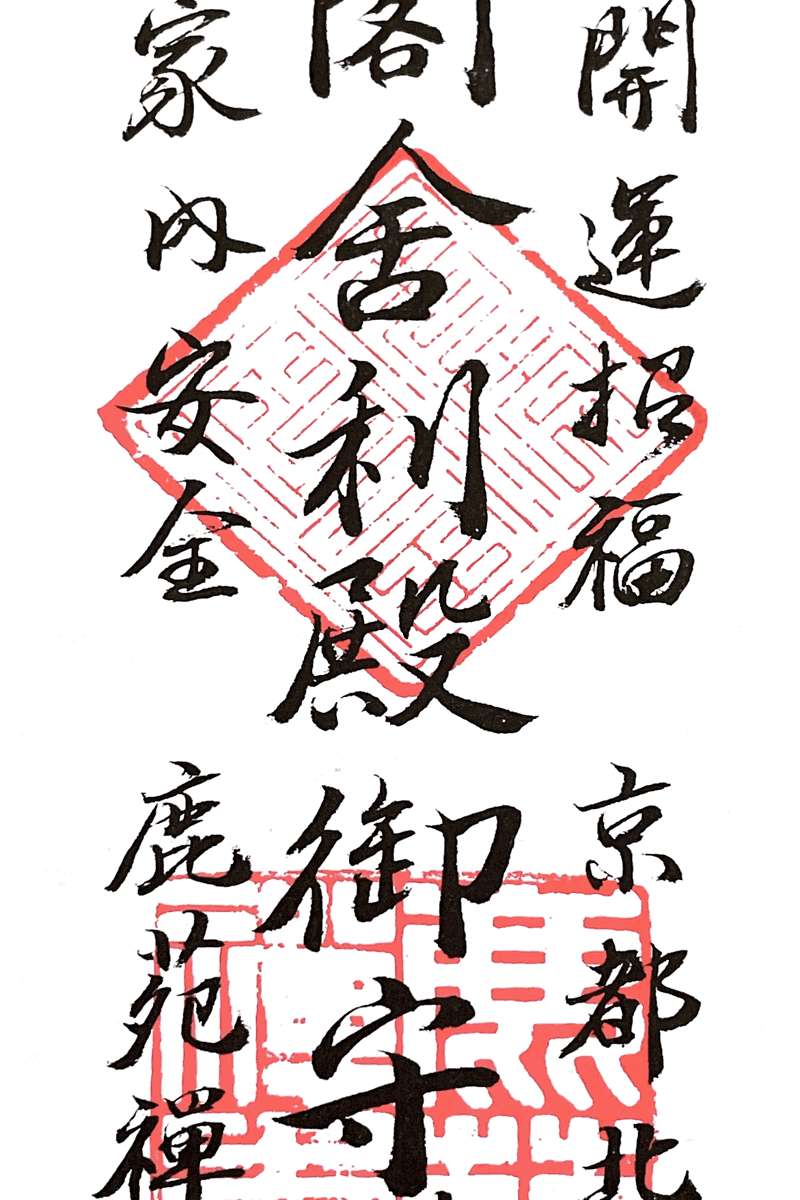 開運招福
京都北
閣舍利殿
御守
家内安全
鹿苑禪